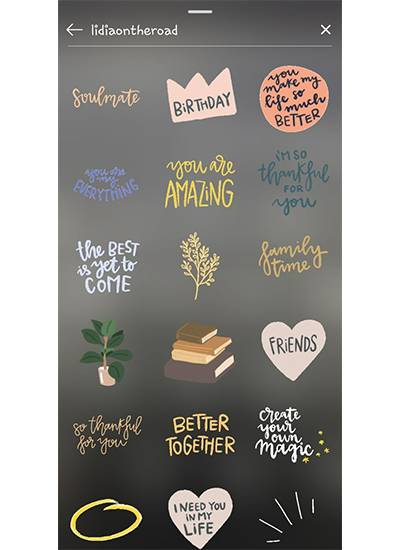 lidiaontheroad
soulmate
BiRTHDAY
you
make my
life so
much
BETTER
you are
my
EVERYTHING
you are
AMAZING
i'm so
thankful
FOR
you
the BEST
is yet to
COME
family
time
FRiENDS
so thankful
for you
BETTER
TOGETHER
create
your
own
magic
I NEED YOU
IN MY
LiFE